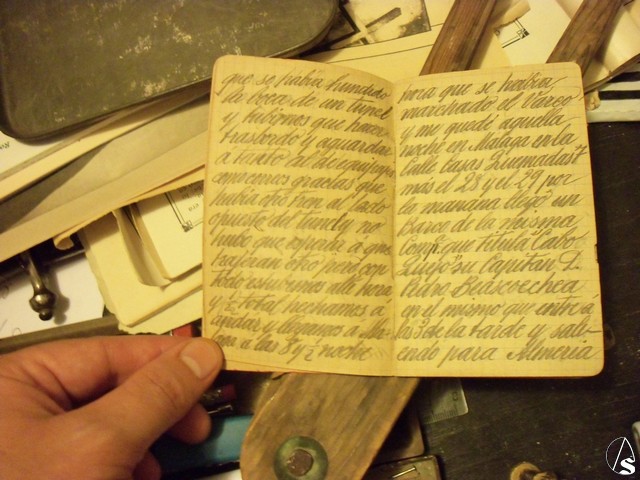 que se había hundido
la boca de un tunel
y tubimos que hacer
trasbordo y aguardar
a tanto al de equipajes
con menos gracias que
había otro tren al lado
opuesto del tunel y no
hubo que esperar a que
trajeran otro pero con
todo estubimos alla hora
y ½ total hechamos a
andar y llegamos a
a las 8 y ½ noche
hora que se había
marchado el Barco
y me quedé aquella
noche en Malaga en la
Calle Casas Quemadas 7
más el 28 y el 29 por
la mañana llegó un
Barco de la misma
Comp.ª que titula Cabo
su Capitan D.
Pedro Beascoechea
en el mismo que entré á
las 3 de la tarde y sali-
endo para Almeria